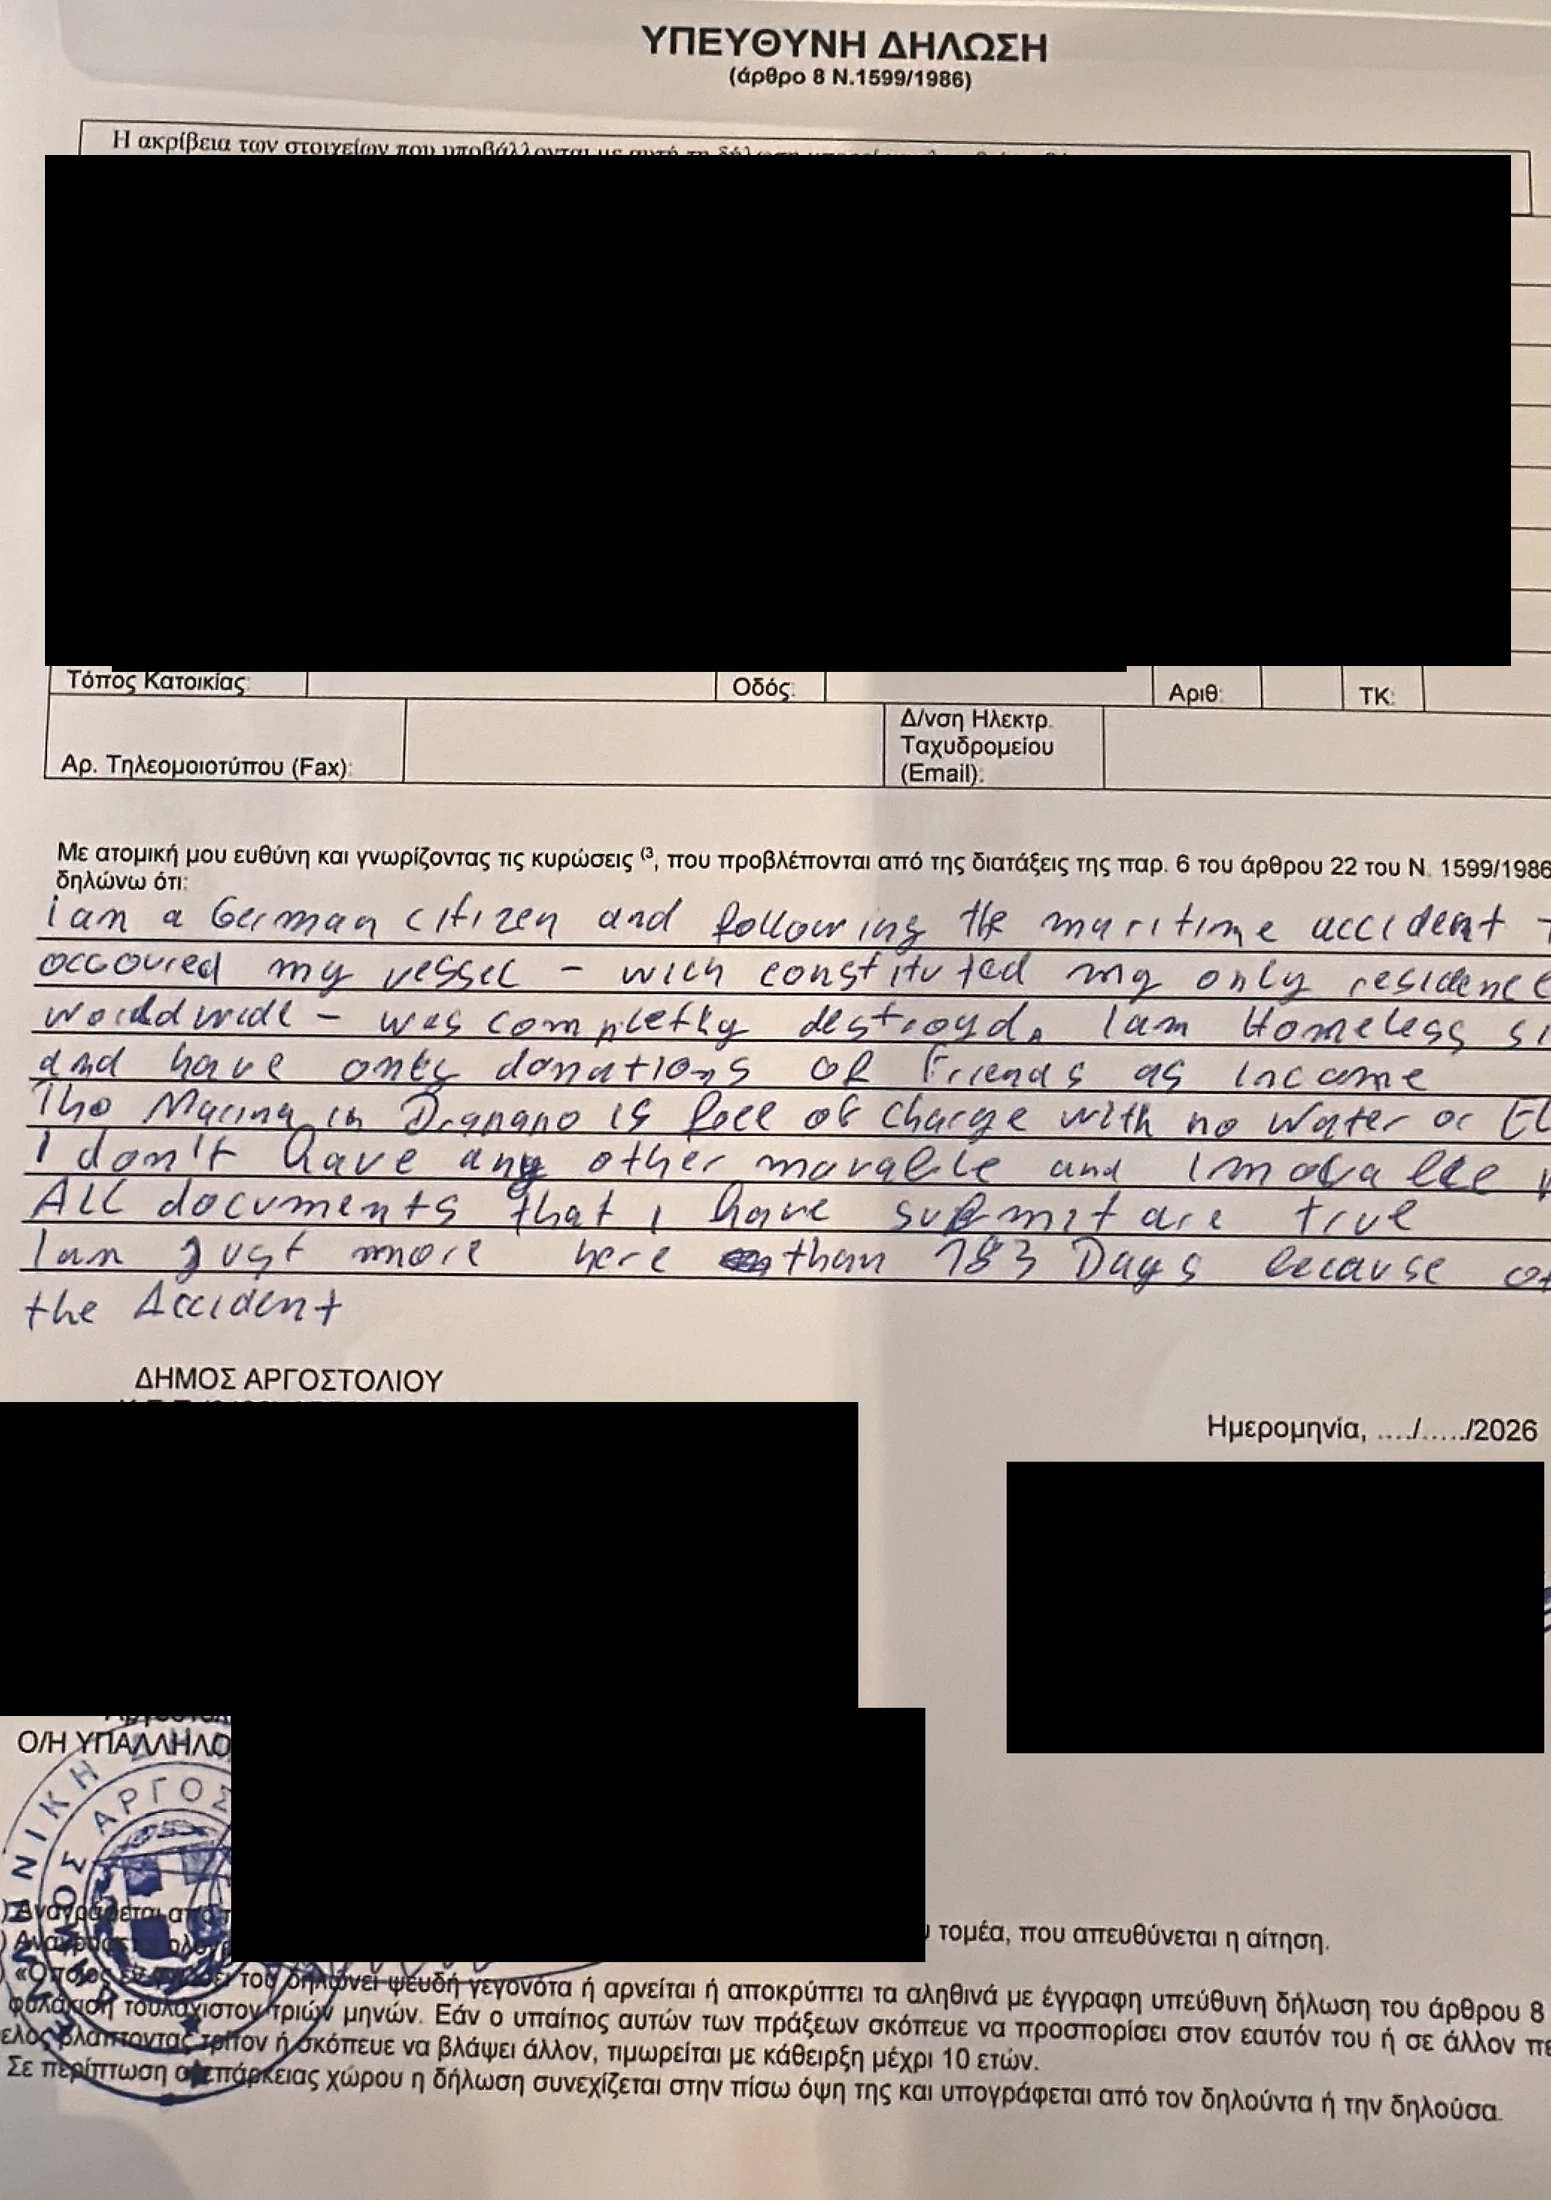 ΥΠΕΥΘΥΝΗ ΔΗΛΩΣΗ
(άρθρο 8 Ν.1599/1986)
Η ακρίβεια των στοιχείων που υποβάλλονται με αυτή τη δήλωση
Τόπος Κατοικίας: Οδός: Αριθ: ΤΚ:
Αρ. Τηλεομοιοτύπου (Fax): Δ/νση Ηλεκτρ. Ταχυδρομείου (Email):
Με ατομική μου ευθύνη και γνωρίζοντας τις κυρώσεις (3, που προβλέπονται από της διατάξεις της παρ. 6 του άρθρου 22 του Ν. 1599/1986
δηλώνω ότι:
I am a German citizen and following the maritime accident
occoured my vessel – wich constituted my only residence
worldwide – was completky destroyd. I am Homeless
and have only donations of Friends as income
The Marina in Drapano is free of charge with no Water or
I don't have any other movable and
All documents that I have submit are true
I am just more here than 183 Days because of
the Accident
ΔΗΜΟΣ ΑΡΓΟΣΤΟΛΙΟΥ
Ημερομηνία, …./…../2026
Ο/Η ΥΠΑΛΛΗΛΟ
Αναγράφεται από τ
τομέα, που απευθύνεται η αίτηση.
«Όποιος εν γνώσει του δηλώνει ψευδή γεγονότα ή αρνείται ή αποκρύπτει τα αληθινά με έγγραφη υπεύθυνη δήλωση του άρθρου 8
φυλάκιση τουλάχιστον τριών μηνών. Εάν ο υπαίτιος αυτών των πράξεων σκόπευε να προσπορίσει στον εαυτόν του ή σε άλλον
βλάπτοντας τρίτον ή σκόπευε να βλάψει άλλον, τιμωρείται με κάθειρξη μέχρι 10 ετών.
Σε περίπτωση ανεπάρκειας χώρου η δήλωση συνεχίζεται στην πίσω όψη της και υπογράφεται από τον δηλούντα ή την δηλούσα.